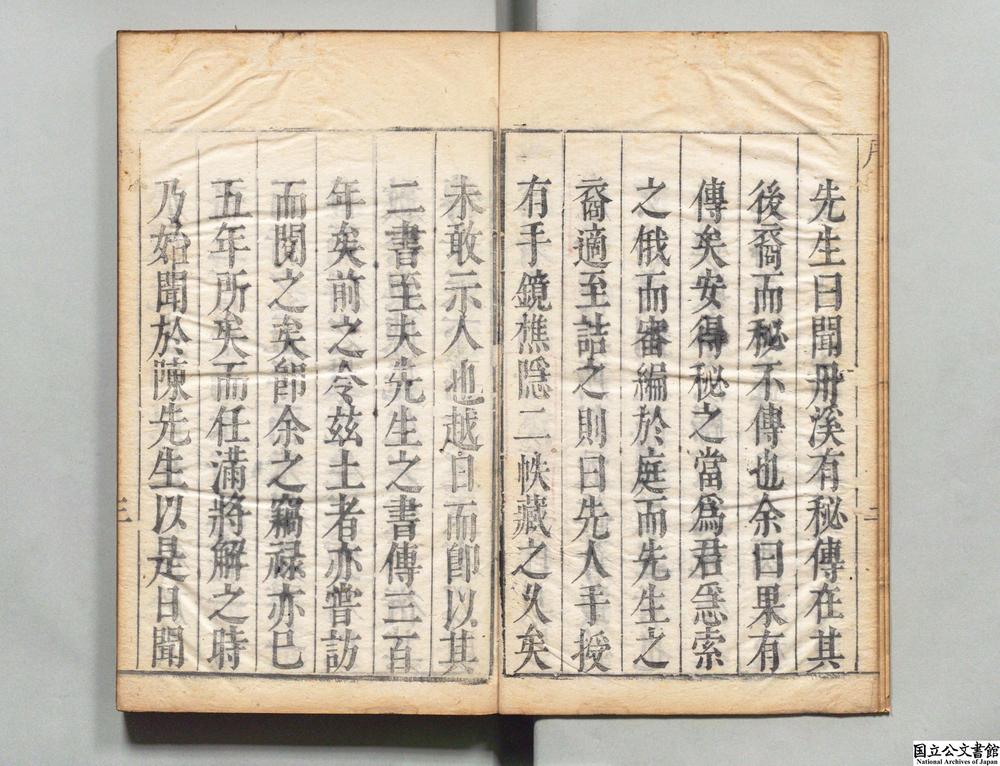 先生曰聞丹溪有秘傳在其
後裔而秘不傳也余曰果有
傳矣安得秘之當爲君急索
之俄而審編於庭而先生之
裔適至詰之則曰先人手授
有手鏡樵隱二帙藏之久矣
未敢示人也越日而卽以其
二書至夫先生之書傳三百
年矣前之令茲土者亦嘗訪
而閱之矣卽余之竊祿亦已
五年所矣而任滿將解之時
乃始聞於陳先生以是日聞
二
三
国立公文書館
National Archives of Japan